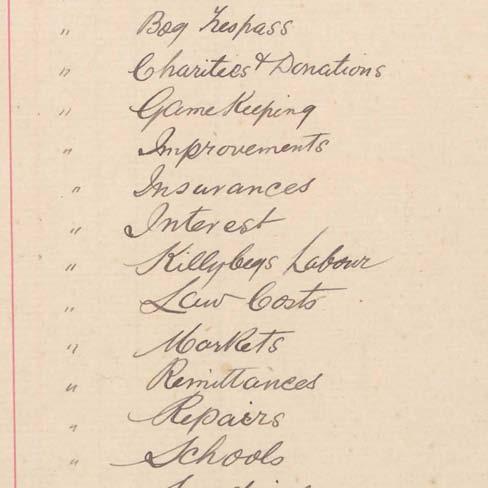 " Bog Trespass
" Charities & Donations
" GameKeeping
" Improvements
" Insurances
" Interest
" Killybegs Labour
" Law Costs
" Markets
" Remittances
" Repairs
" Schools